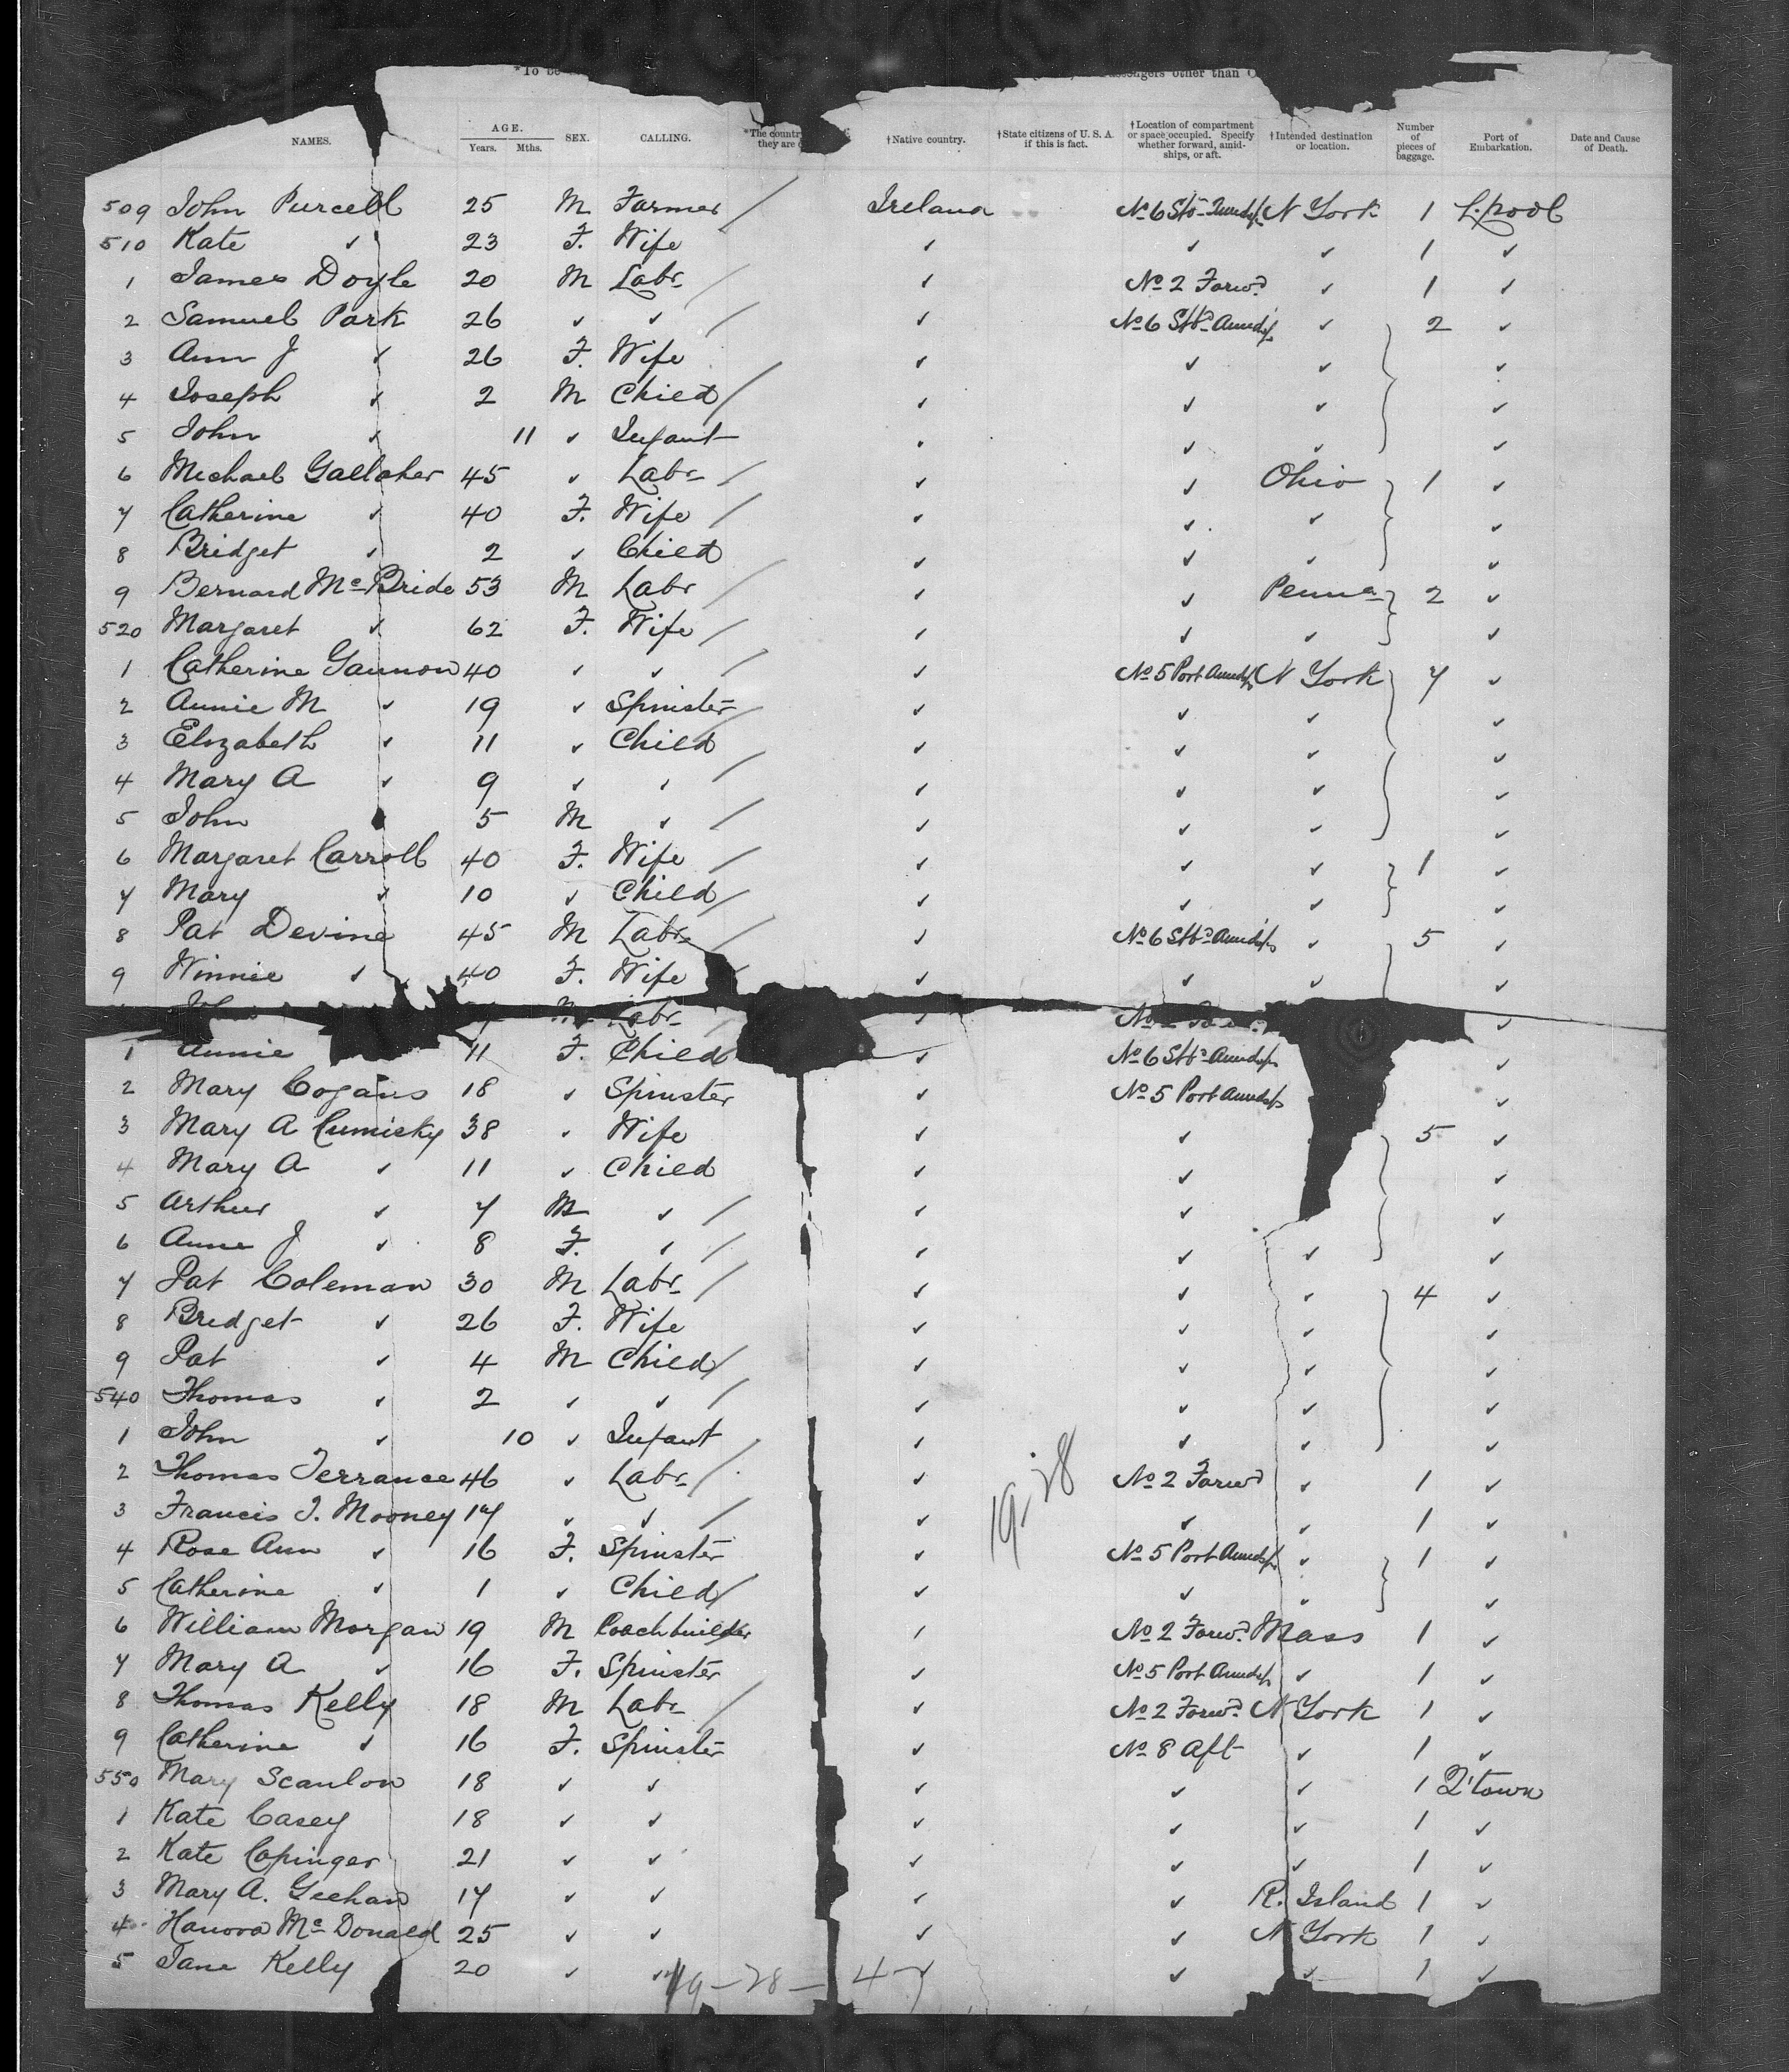 *To be
passengers other than
NAMES. AGE. Years. Mths. SEX. CALLING. *The country they are †Native country. †State citizens of U. S. A. if this is fact. †Location of compartment or space occupied. Specify whether forward, amidships, or aft. †Intended destination or location. Number of pieces of baggage. Port of Embarkation. Date and Cause of Death.
509 John Purcell 25 M Farmer / Ireland No 6 Stb Amdsps N York 1 L.pool
510 Kate ✓ 23 F. Wife ✓ ✓ ✓ 1 ✓
1 James Doyle 20 M Labr / ✓ No 2 Forwd ✓ 1 ✓
2 Samuel Park 26 ✓ ✓ / ✓ No 6 Stbd Amdsps ✓ 2 ✓
3 Ann J ✓ 26 F. Wife ✓ ✓ ✓ ✓
4 Joseph ✓ 2 M Child / ✓ ✓ ✓ ✓
5 John ✓ 11 ✓ Infant ✓ ✓ ✓ ✓
6 Michael Gallaher 45 ✓ Labr / ✓ ✓ Ohio 1 ✓
7 Catherine ✓ 40 F. Wife / ✓ ✓ ✓ ✓
8 Bridget ✓ 2 ✓ Child ✓ ✓ ✓ ✓
9 Bernard McBride 53 M Labr / ✓ ✓ Penna 2 ✓
520 Margaret ✓ 62 F. Wife / ✓ ✓ ✓ ✓
1 Catherine Gannon 40 ✓ ✓ / ✓ No 5 Port Amdsps N York 7 ✓
2 Annie M ✓ 19 ✓ Spinster ✓ ✓ ✓ ✓
3 Elizabeth ✓ 11 ✓ Child / ✓ ✓ ✓ ✓
4 Mary A ✓ 9 ✓ ✓ / ✓ ✓ ✓ ✓
5 John 5 M ✓ / ✓ ✓ ✓ ✓
6 Margaret Carroll 40 F. Wife / ✓ ✓ ✓ 1 ✓
7 Mary ✓ 10 ✓ Child / ✓ ✓ ✓ ✓
8 Pat Devine 45 M Labr / ✓ No 6 Stbd Amdsps ✓ 5 ✓
9 Winnie ✓ 40 F. Wife / ✓ ✓ ✓ ✓
John M Labr ✓ No ✓
1 Annie 11 F. Child ✓ No 6 Stbd Amdsps ✓
2 Mary Cogans 18 ✓ Spinster ✓ No 5 Port Amdsps ✓
3 Mary A Cumisky 38 ✓ Wife ✓ ✓ 5 ✓
4 Mary A ✓ 11 ✓ Child ✓ ✓ ✓
5 Arthur ✓ 7 M ✓ / ✓ ✓ ✓
6 Anne J ✓ 8 F. ✓ / ✓ ✓ ✓ ✓
7 Pat Coleman 30 M Labr / ✓ ✓ ✓ 4 ✓
8 Bridget ✓ 26 F. Wife ✓ ✓ ✓ ✓
9 Pat ✓ 4 M Child / ✓ ✓ ✓ ✓
540 Thomas ✓ 2 ✓ ✓ / ✓ ✓ ✓ ✓
1 John ✓ 10 ✓ Infant ✓ ✓ ✓ ✓
2 Thomas Terrance 46 ✓ Labr / ✓ 19-28 No 2 Forwd ✓ 1 ✓
3 Francis J. Mooney 17 ✓ ✓ / ✓ ✓ ✓ 1 ✓
4 Rose Ann ✓ 16 F. Spinster ✓ No 5 Port Amdsps ✓ 1 ✓
5 Catherine ✓ 1 ✓ Child / ✓ ✓ ✓ ✓
6 William Morgan 19 M Coachbuilder / No 2 Forwd Mass 1 ✓
7 Mary A ✓ 16 F. Spinster ✓ No 5 Port Amdsps ✓ 1 ✓
8 Thomas Kelly 18 M Labr / ✓ No 2 Forwd N York 1 ✓
9 Catherine ✓ 16 F. Spinster ✓ No 8 Aft ✓ 1 ✓
550 Mary Scanlon 18 ✓ ✓ ✓ ✓ ✓ 1 Q'town
1 Kate Casey 18 ✓ ✓ ✓ ✓ ✓ 1 ✓
2 Kate Copinger 21 ✓ ✓ ✓ ✓ ✓ 1 ✓
3 Mary A. Geehan 17 ✓ ✓ ✓ ✓ R. Island 1 ✓
4 Hanora McDonald 25 ✓ ✓ ✓ ✓ N York 1 ✓
5 Jane Kelly 20 ✓ ✓ ✓ ✓ ✓ 1 ✓
19-28-47